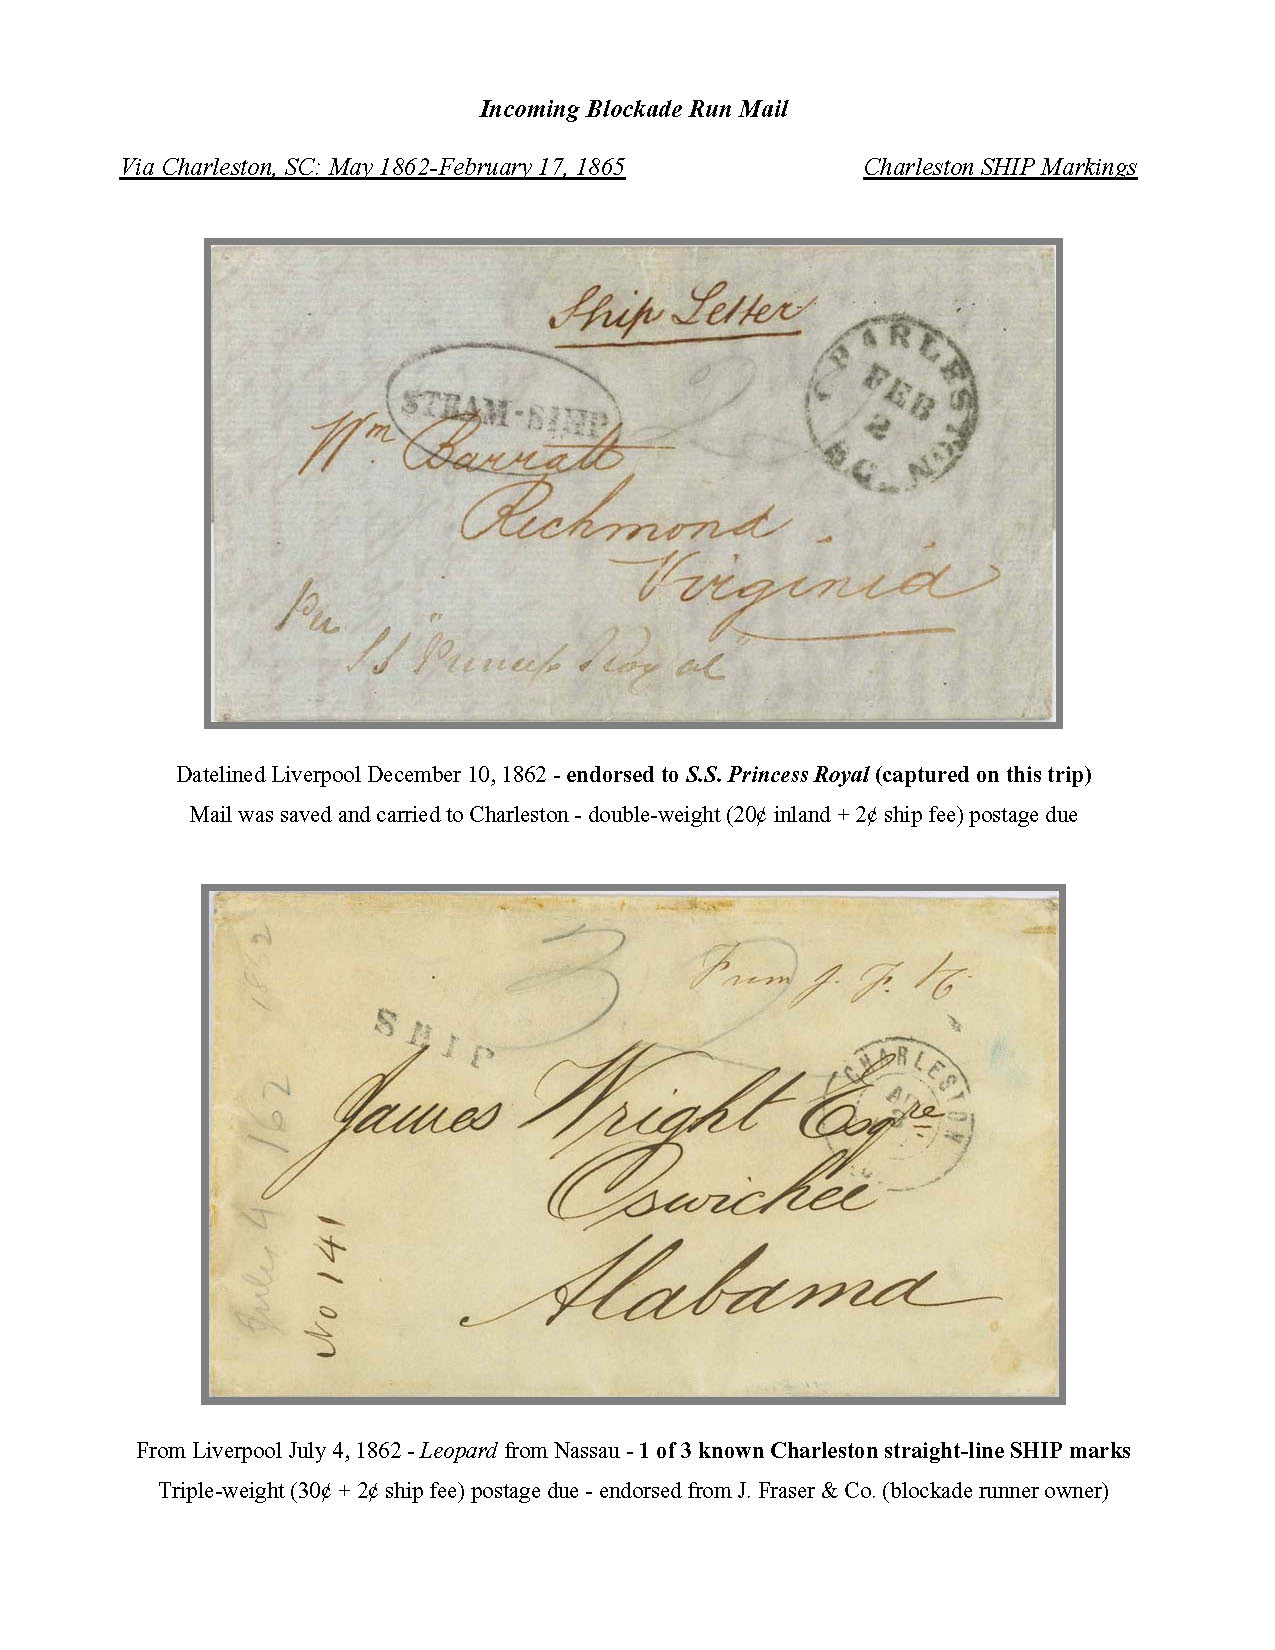 Incoming Blockade Run Mail
Via Charleston, SC: May 1862-February 17, 1865 Charleston SHIP Markings
Ship Letter
STEAM-SHIP
CHARLESTON
FEB
2
S.C.
Wm. Barratt
Richmond
Virginia
Per
SS "Princess Royal"
Datelined Liverpool December 10, 1862 - endorsed to S.S. Princess Royal (captured on this trip)
Mail was saved and carried to Charleston - double-weight (20¢ inland + 2¢ ship fee) postage due
32
From J. F. & Co
SHIP
CHARLESTON
James Wright Esqre
Oswichee
Alabama
No 141
July 4 1862
1862
From Liverpool July 4, 1862 - Leopard from Nassau - 1 of 3 known Charleston straight-line SHIP marks
Triple-weight (30¢ + 2¢ ship fee) postage due - endorsed from J. Fraser & Co. (blockade runner owner)